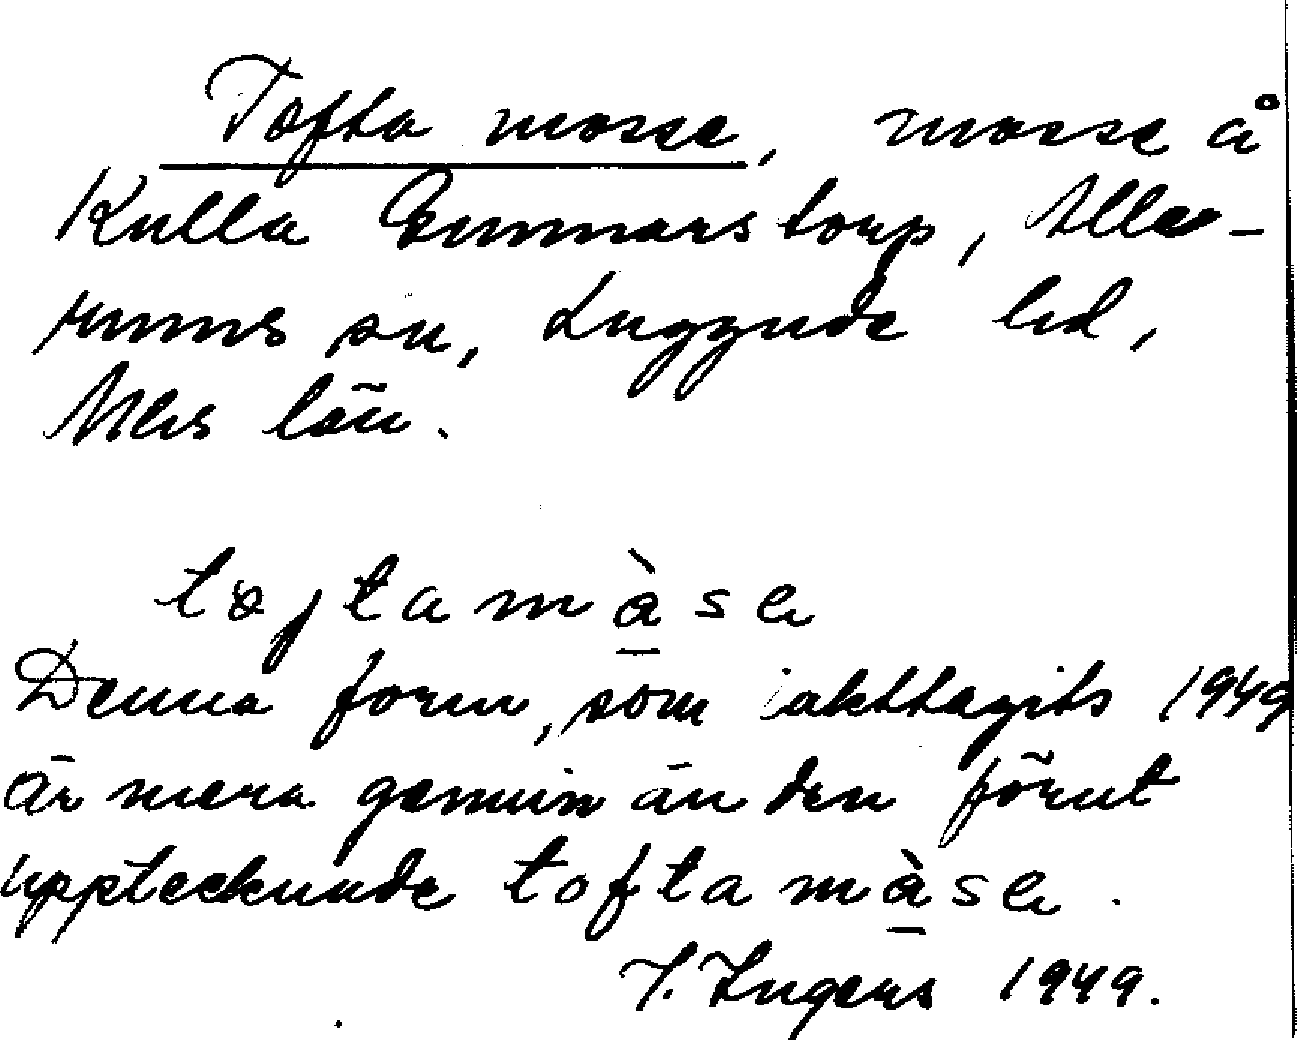 Tofta mosse, mosse å
Kulla Gunnarstorp, Alle-
rums sn, Luggude hd,
Mlhs län.
toftamàse
Denna form, som iakttagits 1949
är mera genuin än den förut
upptecknade toftamàse.
I. Ingers 1949.